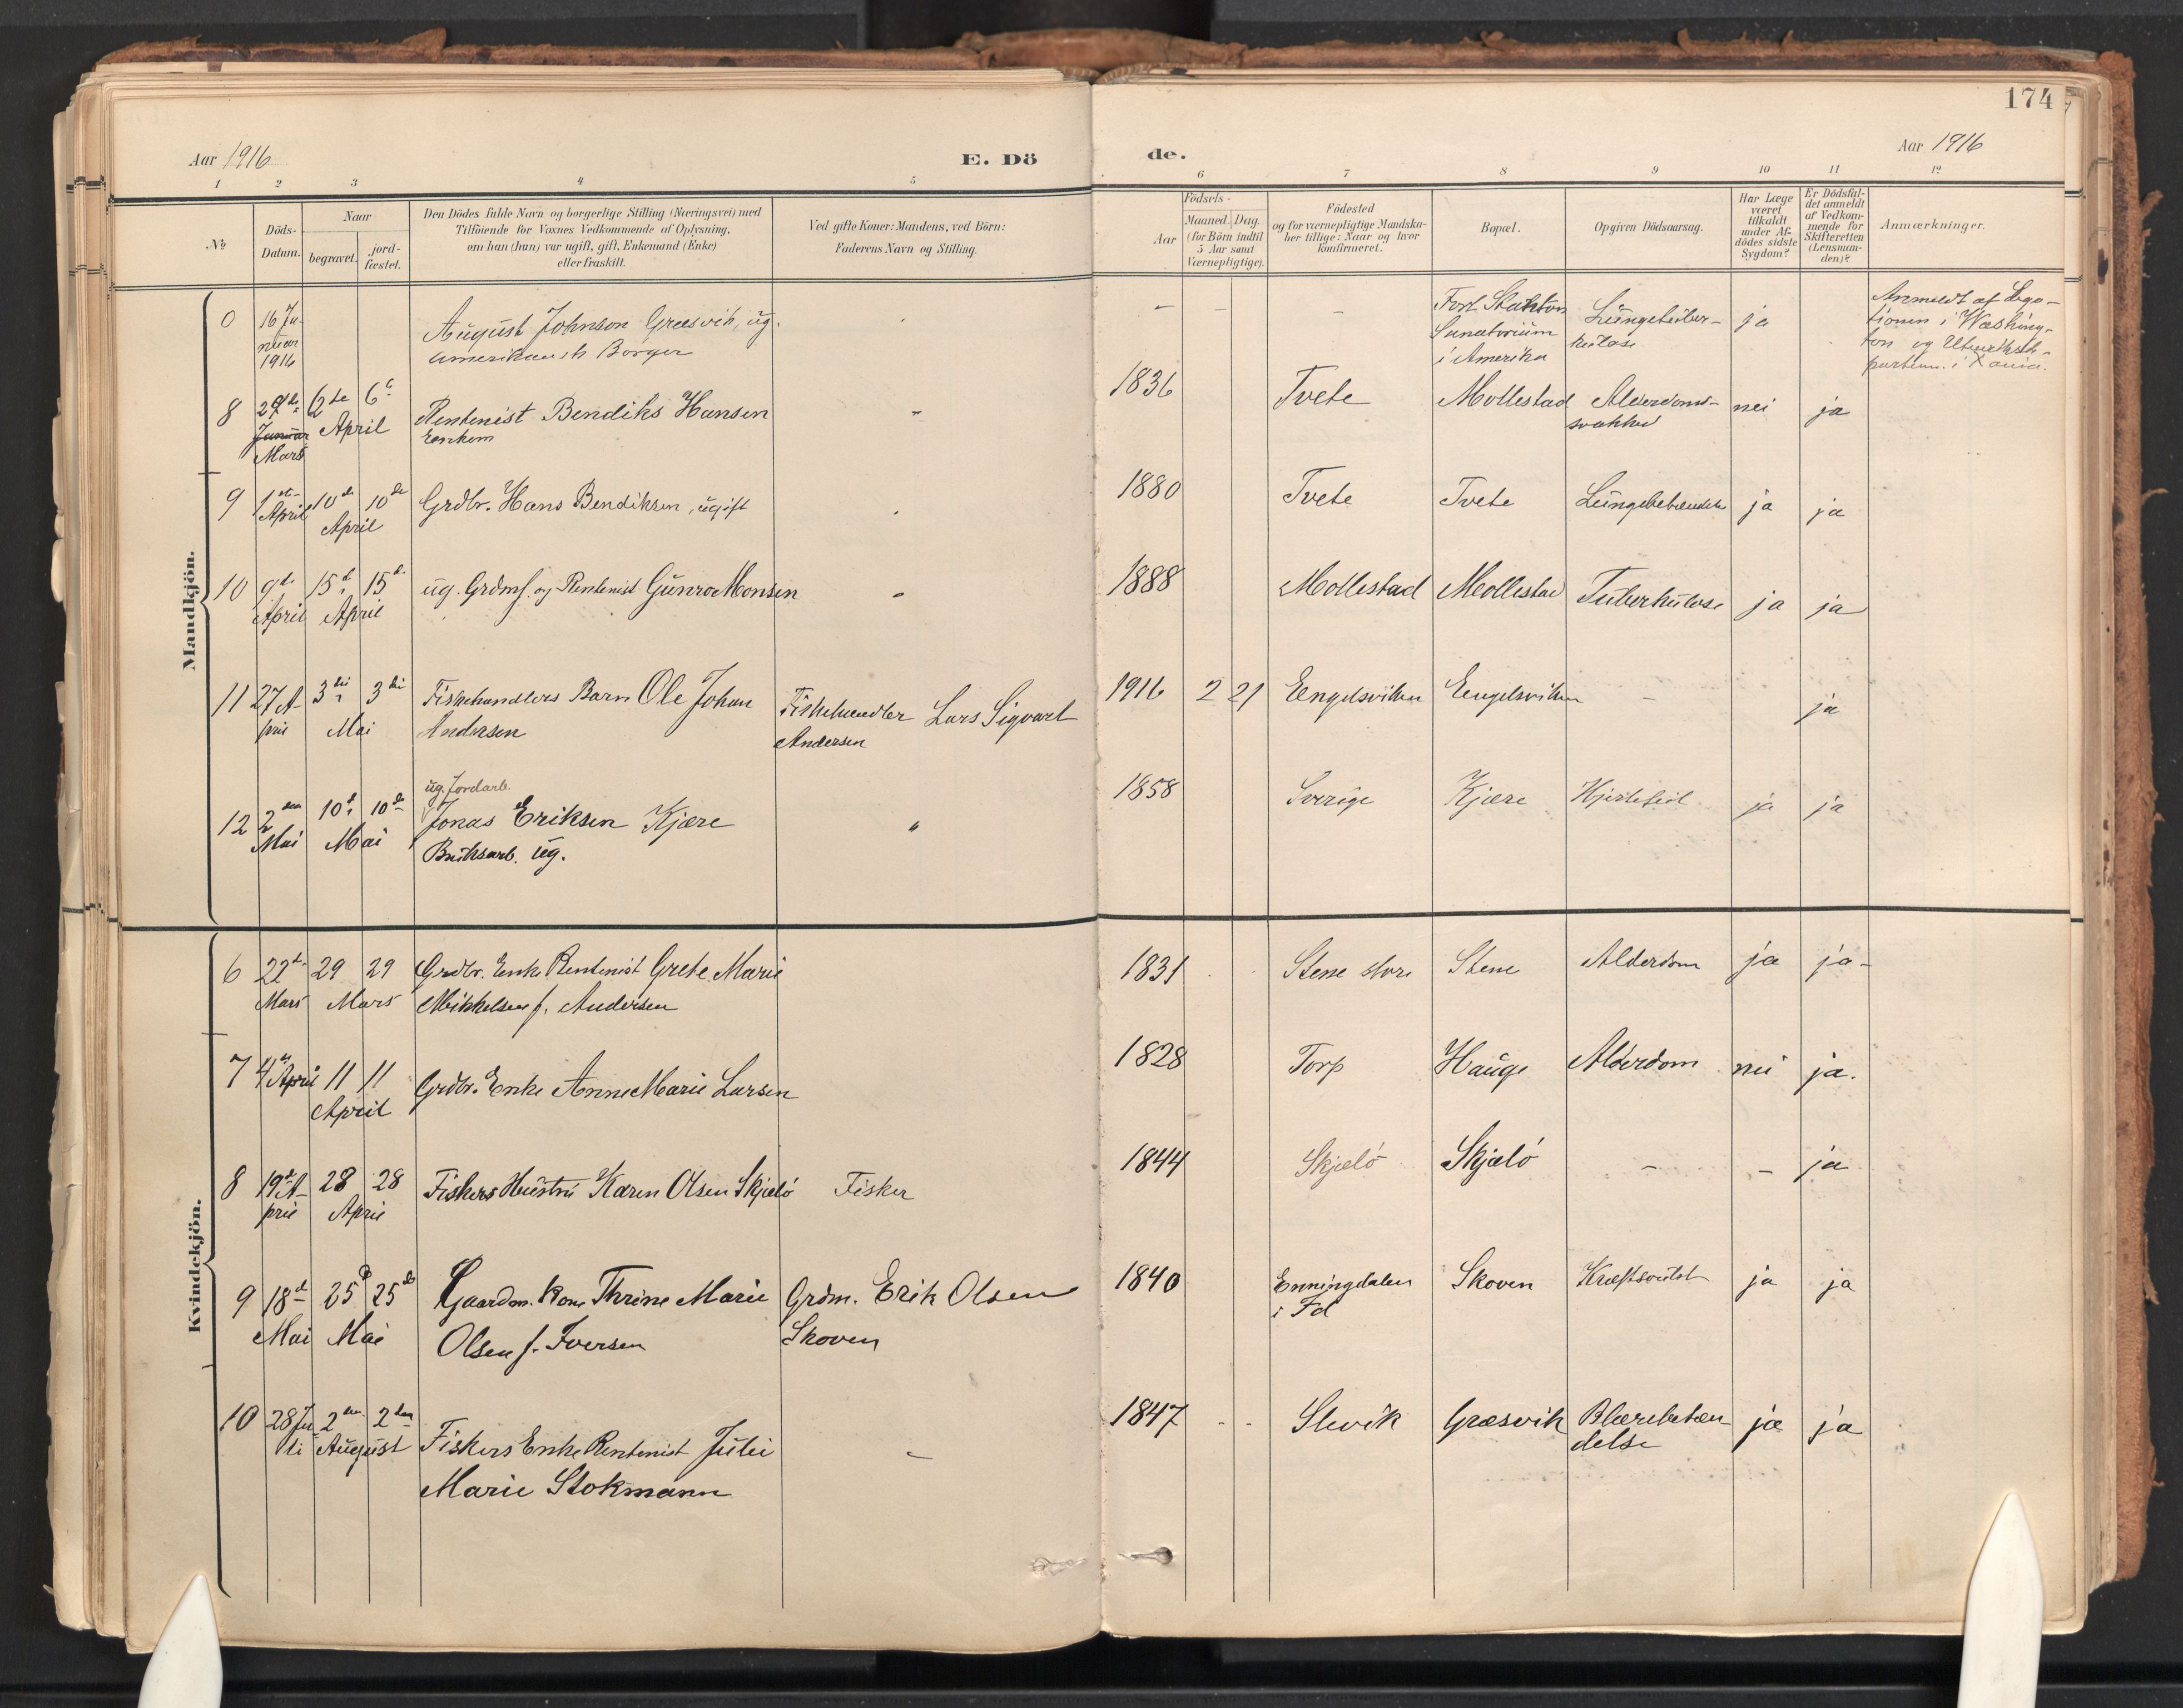 174
Aar 1916
E. Dö
de.
Aar 1916
1 2 3 4 5 6 7 8 9 10 11 12
№
Döds-Datum.
Naar
begravet.
jord-fæstet.
Den Dödes fulde Navn og borgerlige Stilling (Næringsvei) med
Tilföiende for Voxnes Vedkommende af Oplysning,
om han (hun) var ugift, gift, Enkemand (Enke)
eller fraskilt.
Ved gifte Koner: Mandens, ved Börn:
Faderens Navn og Stilling.
Födsels-
Aar
Maaned. Dag.
(for Börn indtil
5 Aar samt
Værnepligtige).
Födested
og for værnepligtige Mandska-
ber tillige: Naar og hvor
konfirmeret.
Bopæl.
Opgiven Dödsaarsag.
Har Læge
været
tilkaldt
under Af-
dödes sidste
Sygdom?
Er Dödsfal-
det anmeldt
af Vedkom-
mende for
Skifteretten
(Lensman-
den)?
Anmærkninger.
Mandkjön.
0 16 Ja-
nuar
1916
August Johnson Græsvik, ug.
amerikansk Borger
- - - -
Fort Stanton
Sanatorium
i Amerika
Lungetuber-
kulose
ja
Anmeldt af Lega-
tionen i Washing-
ton og Utenriksde-
partem. i Xania.
8 29de Januar Mars
6te 6te April
Rentenist Bendiks Hansen
Enkem
"
1836 Tvete Mollestad Alderdoms-
svakhed
nei ja
9 1ste April 10de 10de April
Grdbr. Hans Bendiksen, ugift
1880 Tvete Tvete Lungebetændelse ja ja
10 9de April 15de 15de April
ug. Grdmf. og Rentenist Gunro Monsen
"
1888 Mollestad Mollestad Tuberkulose ja ja
11 27 A-
pril 3die 3die Mai
Fiskehandlers Barn Ole Johan
Andersen
Fiskehandler Lars Sigvart
Andersen
1916 2 21 Engelsviken Engelsviken - ja
12 2den Mai 10de 10de Mai
ug. Jordarb.
Jonas Eriksen Kjære
Bruksarb. ug.
"
1858 Sverige Kjære Hjertefeil ja ja
Kvindekjön.
6 22de Mars 29 29 Mars
Grdbr. Enke Rentenist Grete Marie
Mikkelsen f. Andersen
1831 Stene store Stene Alderdom ja ja-
7 4de April 11 11 April
Grdbr. Enke Anne Marie Larsen
1828 Torp Hauge Alderdom nei ja.
8 19de A-
pril 28 28 April
Fiskers Hustru Karen Olsen Skjelö
Fisker
1844 Skjelö Skjælö - - ja
9 18de Mai 25de 25de Mai
Gaardm. Kone Thrine Marie
Olsen f. Iversen
Grdm. Erik Olsen
Skoven
1840 Enningdalen
i Fd
Skoven Kræftsvulst ja ja
10 28 Ju-
li 2den 2den August
Fiskers Enke Rentenist Julie
Marie Stokmann
-
1847 - - Slevik Græsvik Blærebetæn
delse
ja ja